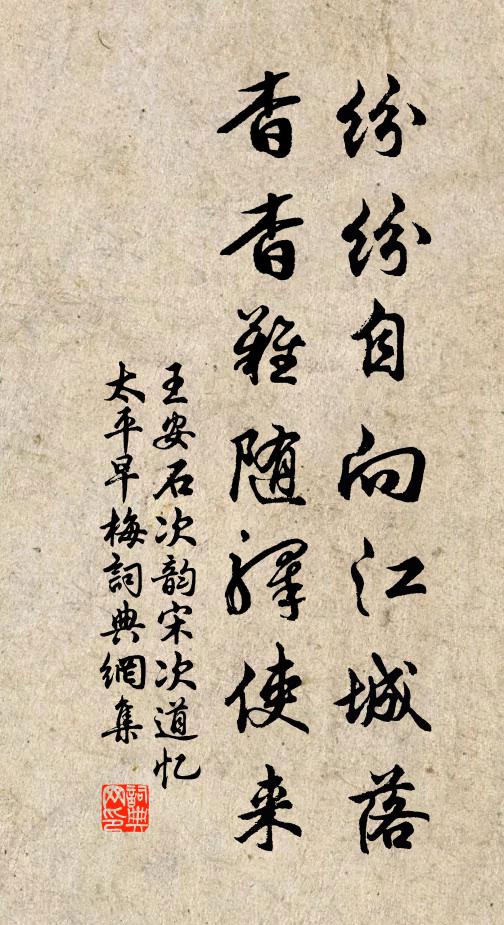 纷纷自向江城落
杳杳難随驛使来
王安石次韵宋次道忆
太平早梅詞典網集
詞典
网印